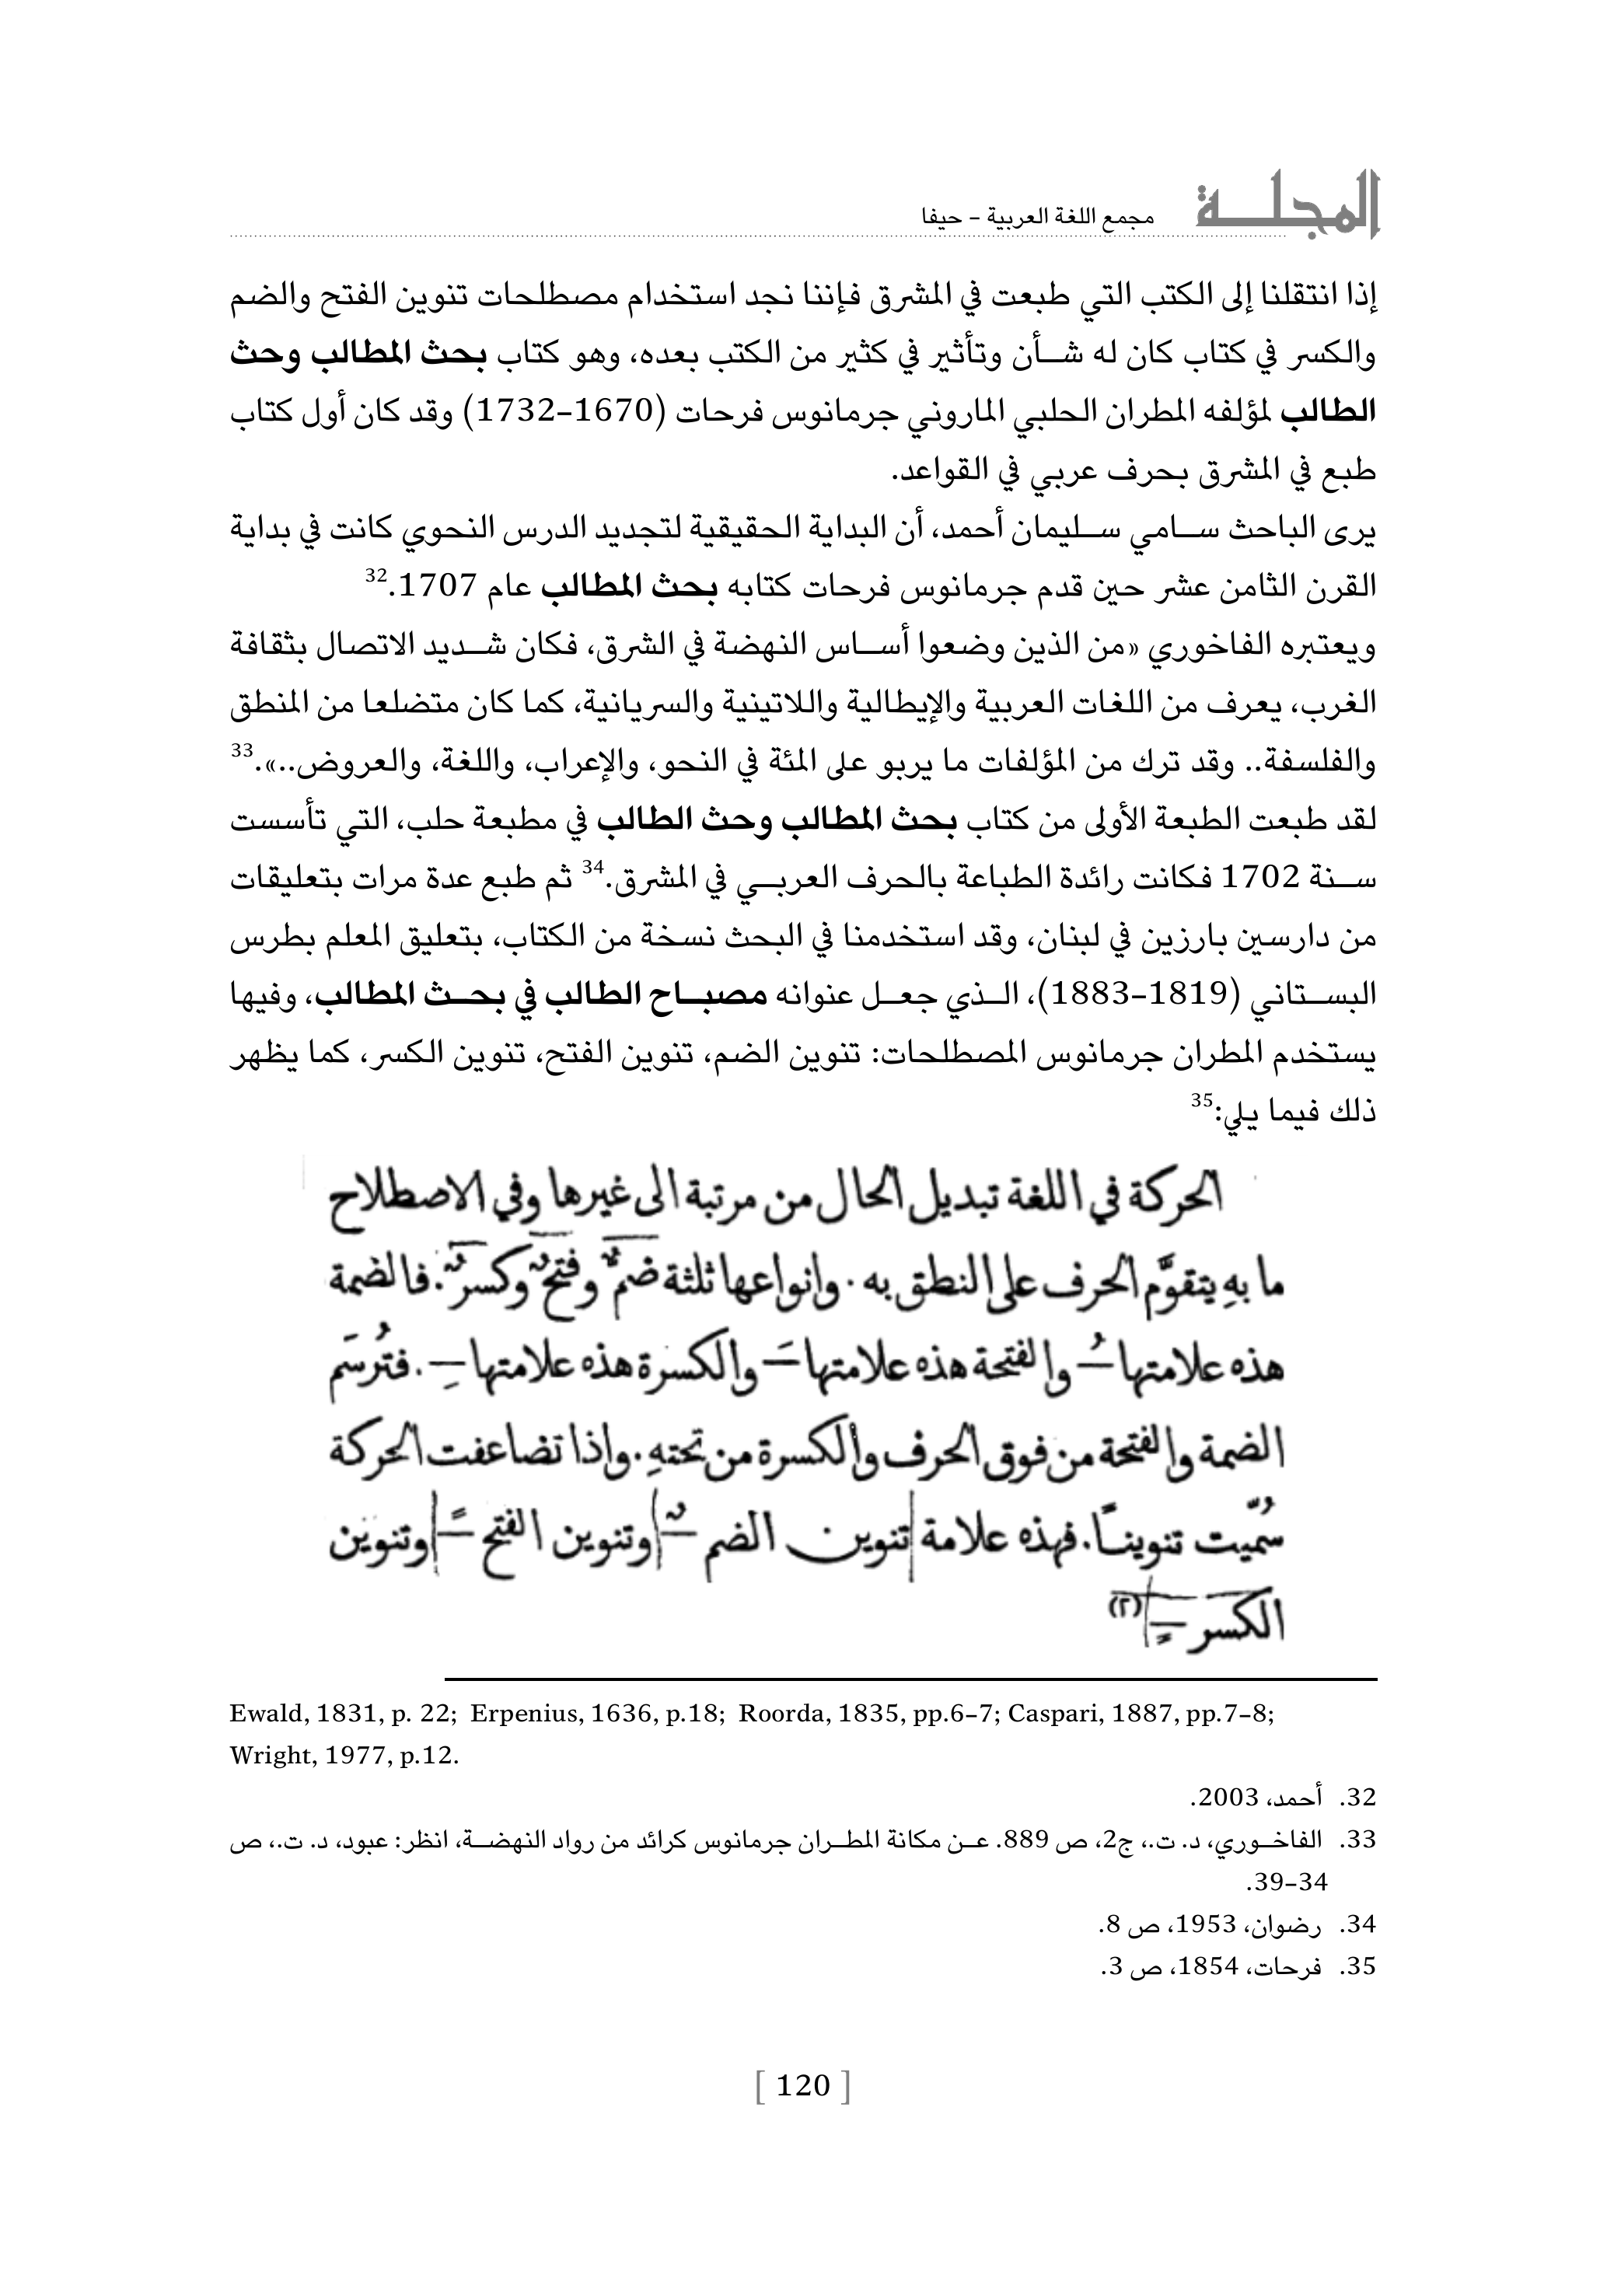 المجلة
مجمع اللغة العربية – حيفا
إذا انتقلنا إلى الكتب التي طبعت في المشرق فإننا نجد استخدام مصطلحات تنوين الفتح والضم
والكسر في كتاب كان له شأن وتأثير في كثير من الكتب بعده، وهو كتاب بحث المطالب وحث
الطالب لمؤلفه المطران الحلبي الماروني جرمانوس فرحات (1670–1732) وقد كان أول كتاب
طبع في المشرق بحرف عربي في القواعد.
يرى الباحث سامي سليمان أحمد، أن البداية الحقيقية لتجديد الدرس النحوي كانت في بداية
القرن الثامن عشر حين قدم جرمانوس فرحات كتابه بحث المطالب عام 1707.32
ويعتبره الفاخوري «من الذين وضعوا أساس النهضة في الشرق، فكان شديد الاتصال بثقافة
الغرب، يعرف من اللغات العربية والإيطالية واللاتينية والسريانية، كما كان متضلعا من المنطق
والفلسفة.. وقد ترك من المؤلفات ما يربو على المئة في النحو، والإعراب، واللغة، والعروض..».33
لقد طبعت الطبعة الأولى من كتاب بحث المطالب وحث الطالب في مطبعة حلب، التي تأسست
سنة 1702 فكانت رائدة الطباعة بالحرف العربي في المشرق.34 ثم طبع عدة مرات بتعليقات
من دارسين بارزين في لبنان، وقد استخدمنا في البحث نسخة من الكتاب، بتعليق المعلم بطرس
البستاني (1819–1883)، الذي جعل عنوانه مصباح الطالب في بحث المطالب، وفيها
يستخدم المطران جرمانوس المصطلحات: تنوين الضم، تنوين الفتح، تنوين الكسر، كما يظهر
ذلك فيما يلي:35
الحركة في اللغة تبديل الحال من مرتبة الى غيرها وفي الاصطلاح
ما بهِ يتقوَّم الحرف على النطق به. وانواعها ثلثة ضمٌّ وفتحٌ وكسرٌ. فالضمة
هذه علامتها ـُ والفتحة هذه علامتها ـَ والكسرة هذه علامتها ـِ. فتُرسَم
الضمة والفتحة من فوق الحرف والكسرة من تحتهِ. واذا تضاعفت الحركة
سُمّيت تنوينـًا. فهذه علامة تنوين الضم ـٌ وتنوين الفتح ـً وتنوين
الكسر ـٍ (٢)
Ewald, 1831, p. 22; Erpenius, 1636, p.18; Roorda, 1835, pp.6–7; Caspari, 1887, pp.7–8;
Wright, 1977, p.12.
32. أحمد، 2003.
33. الفاخوري، د. ت.، ج2، ص 889. عن مكانة المطران جرمانوس كرائد من رواد النهضة، انظر: عبود، د. ت.، ص
34–39.
34. رضوان، 1953، ص 8.
35. فرحات، 1854، ص 3.
[ 120 ]